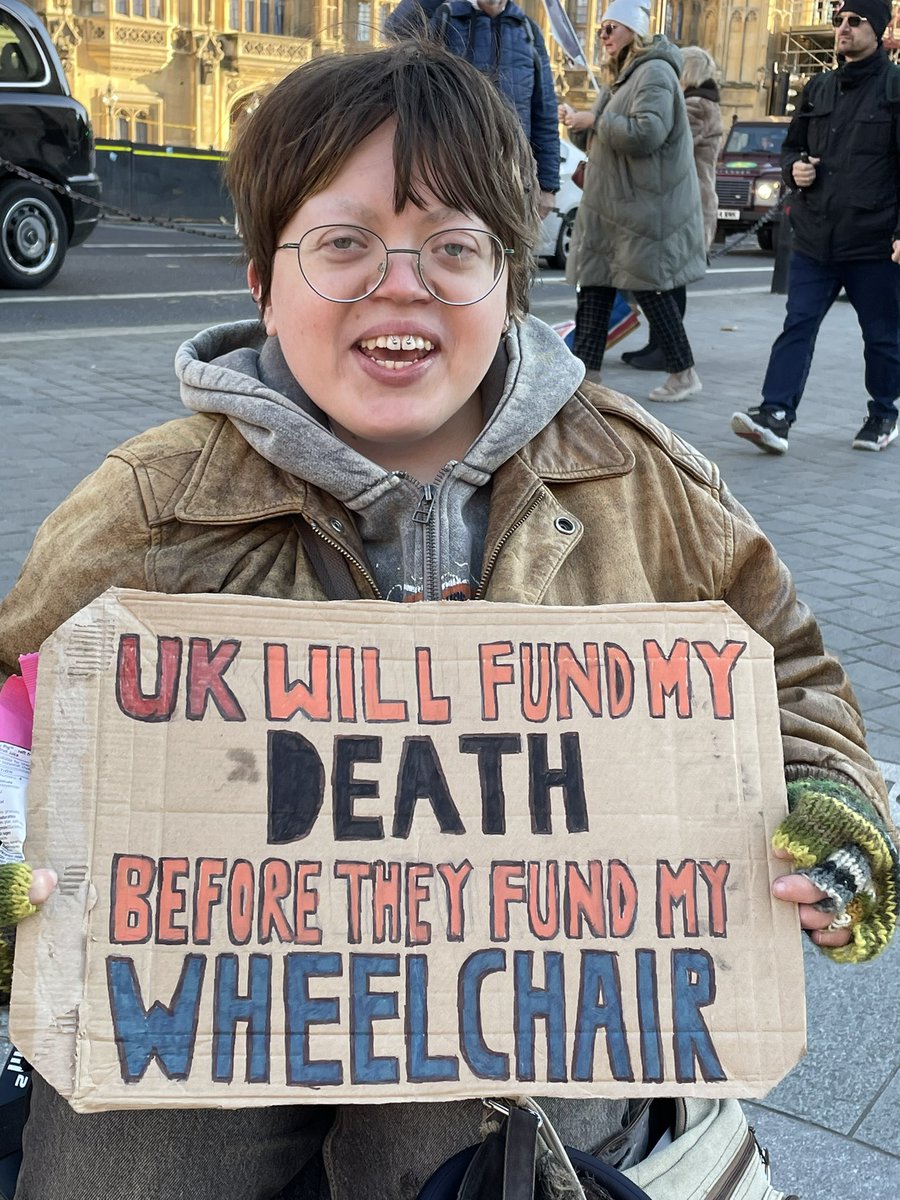 UK WILL FUND MY
DEATH
BEFORE THEY FUND MY
WHEELCHAIR